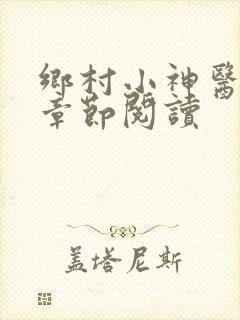 鄉村小神醫
章節閱讀
盖塔尼斯